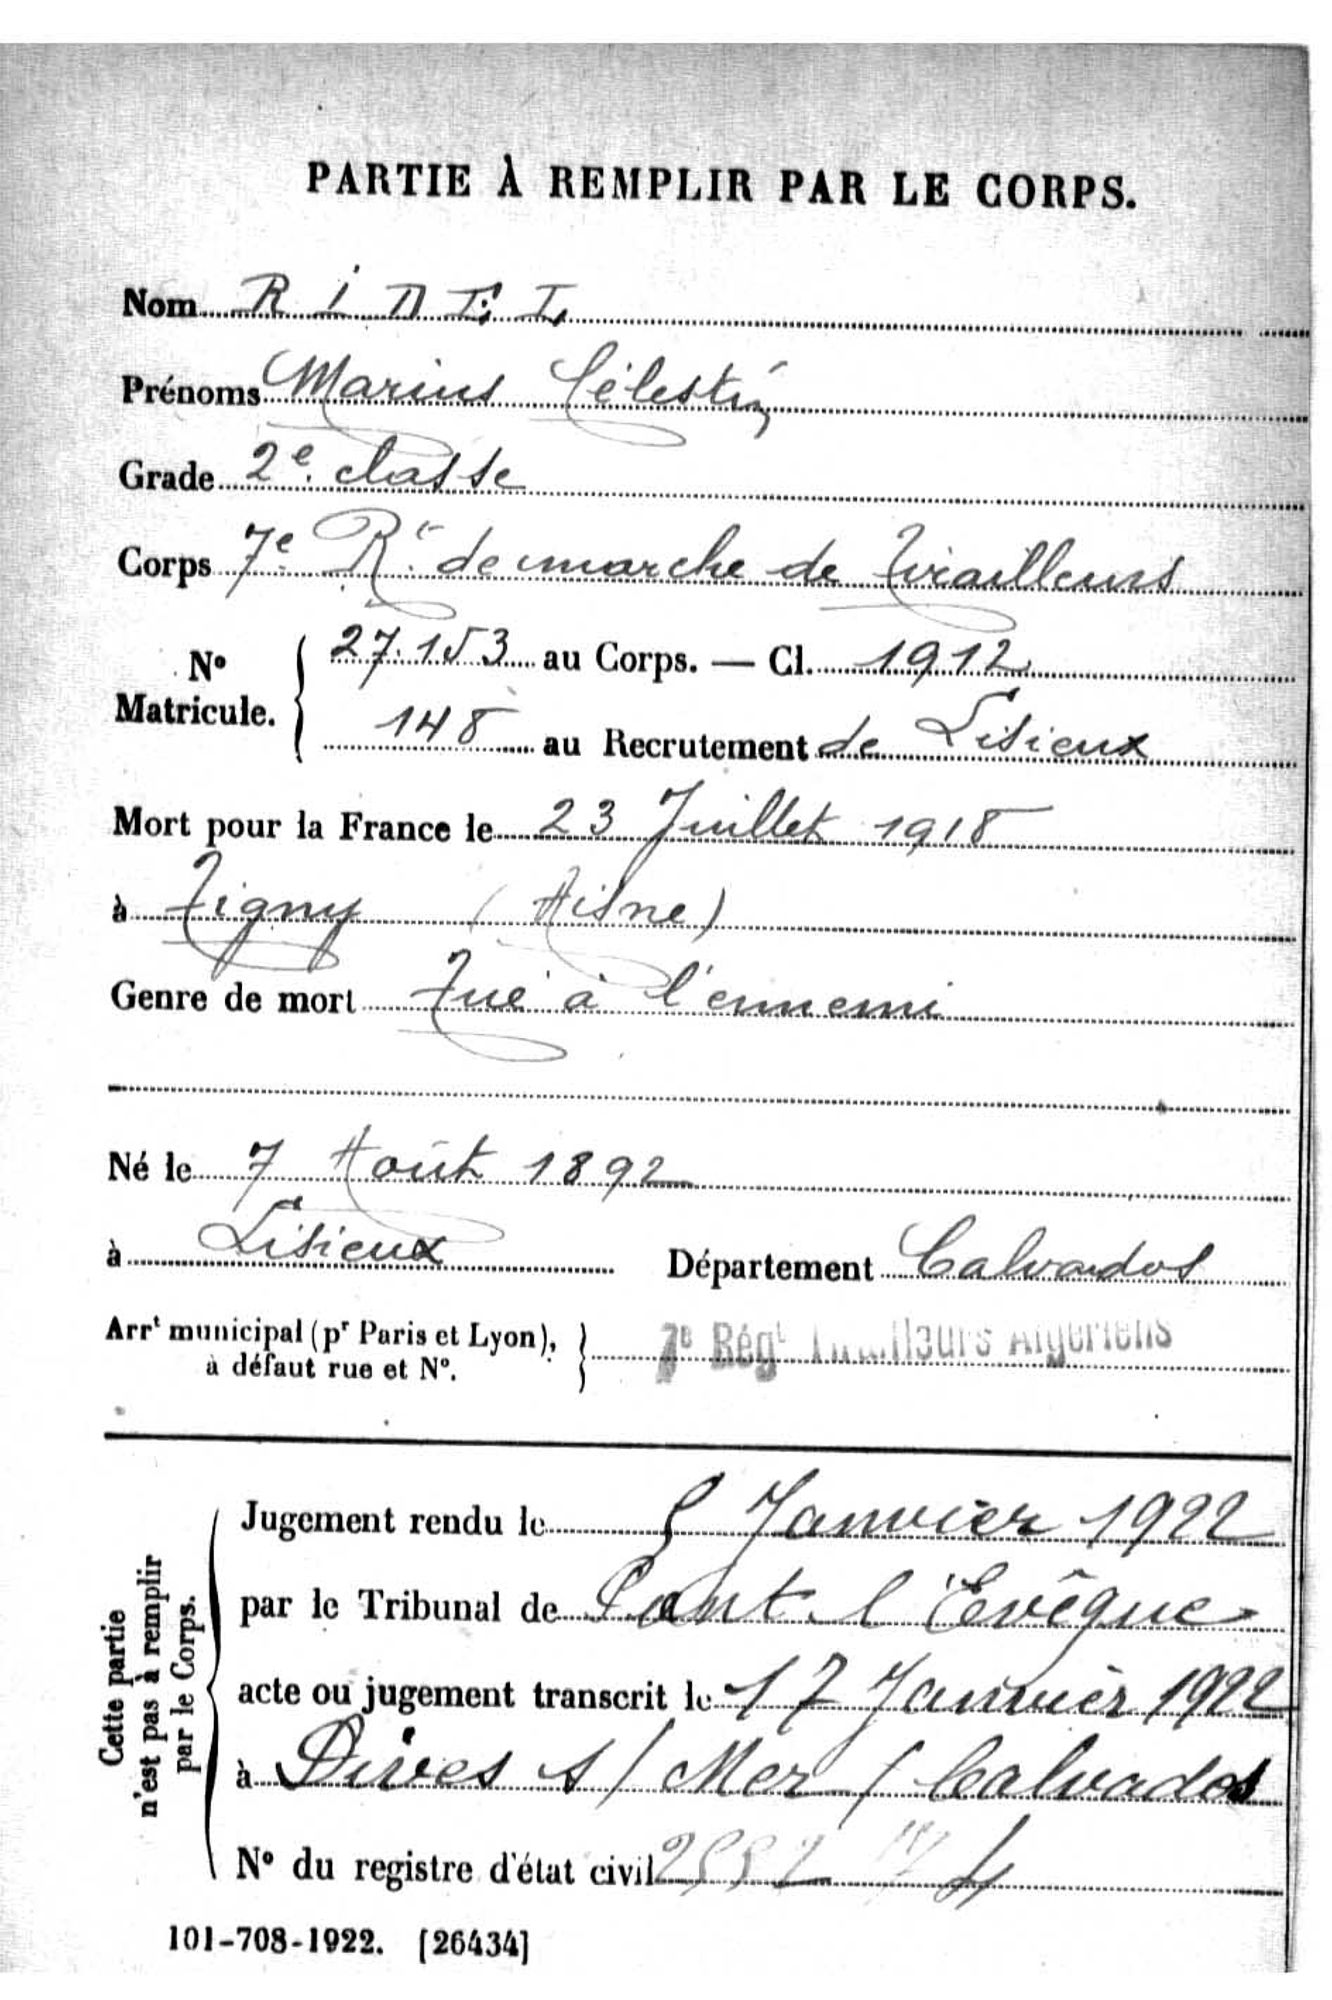 PARTIE À REMPLIR PAR LE CORPS.
Nom RIDEL
Prénoms Marius Célestin
Grade 2e classe
Corps 7e Rt de marche de Tirailleurs
No Matricule. 27.153 au Corps. — Cl. 1912
148 au Recrutement de Lisieux
Mort pour la France le 23 Juillet 1918
à Tigny (Aisne)
Genre de mort Tué à l'ennemi
Né le 7 Août 1892
à Lisieux Département Calvados
Arrt municipal (pr Paris et Lyon), à défaut rue et No. 7e Régt Tirailleurs Algériens
Cette partie n'est pas à remplir par le Corps.
Jugement rendu le 5 Janvier 1922
par le Tribunal de Pont l'Evêque
acte ou jugement transcrit le 17 Janvier 1922
à Dives s/ Mer / Calvados
No du registre d'état civil
101-708-1922. [26434]